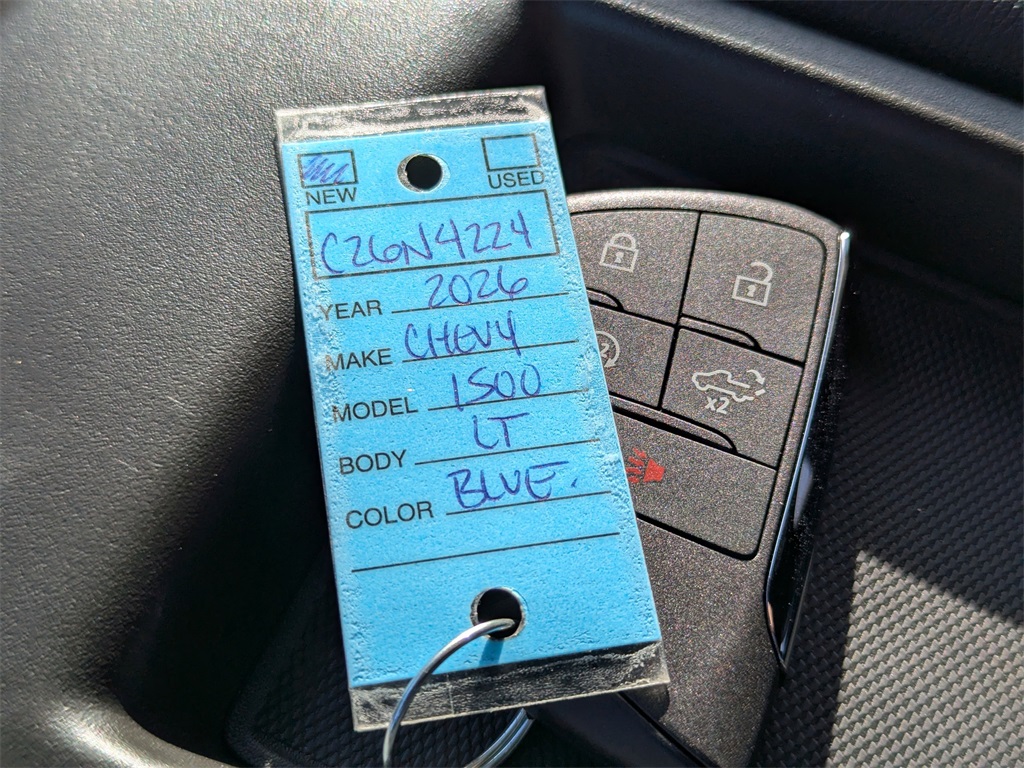 NEW USED
C26N4224
YEAR 2026
MAKE CHEVY
MODEL 1500
BODY LT
COLOR BLUE.
x2